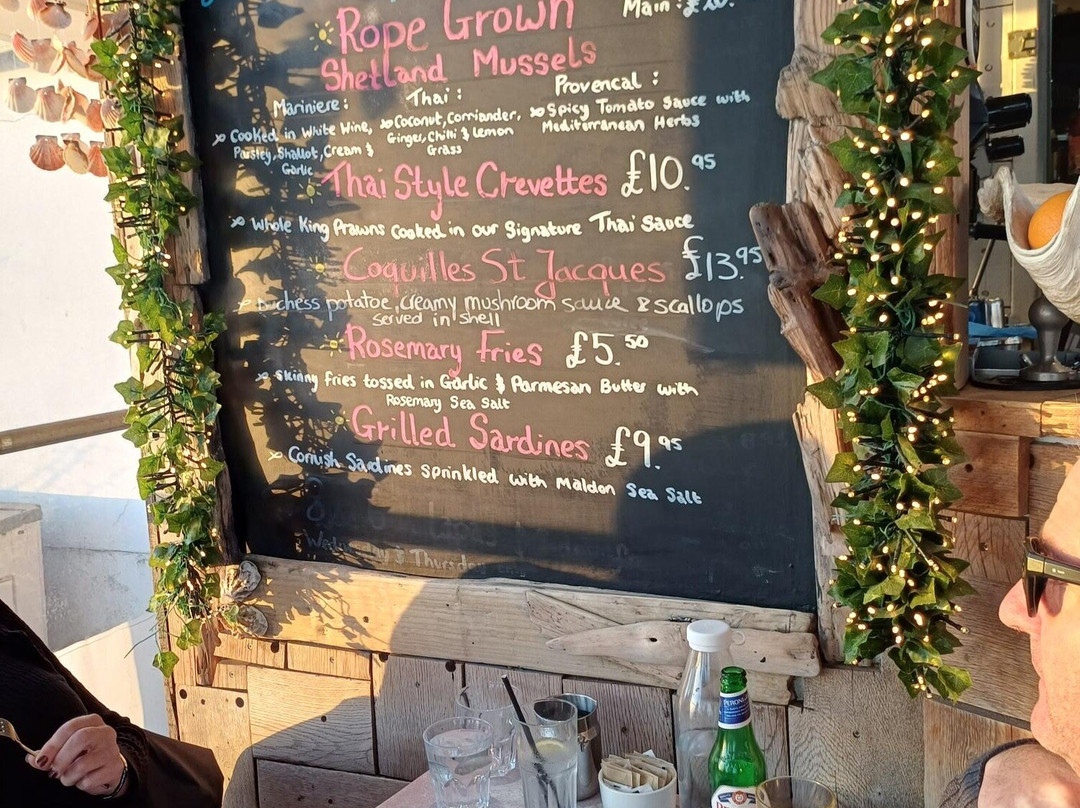 Main: £
Rope Grown
Shetland Mussels
Mariniere: Thai: Provencal:
Cooked in White Wine, Parsley, Shallot, Cream & Garlic
Coconut, Corriander, Ginger, Chilli & Lemon Grass
Spicy Tomato Sauce with Mediterranean Herbs
Thai Style Crevettes £10.95
Whole King Prawns Cooked in our Signature Thai Sauce
Coquilles St Jacques £13.95
Duchess potatoe, creamy mushroom sauce & scallops
served in shell
Rosemary Fries £5.50
Skinny fries tossed in Garlic & Parmesan Butter with
Rosemary Sea Salt
Grilled Sardines £9.95
Cornish Sardines sprinkled with Maldon Sea Salt
Wednesday & Thursday
PERONI